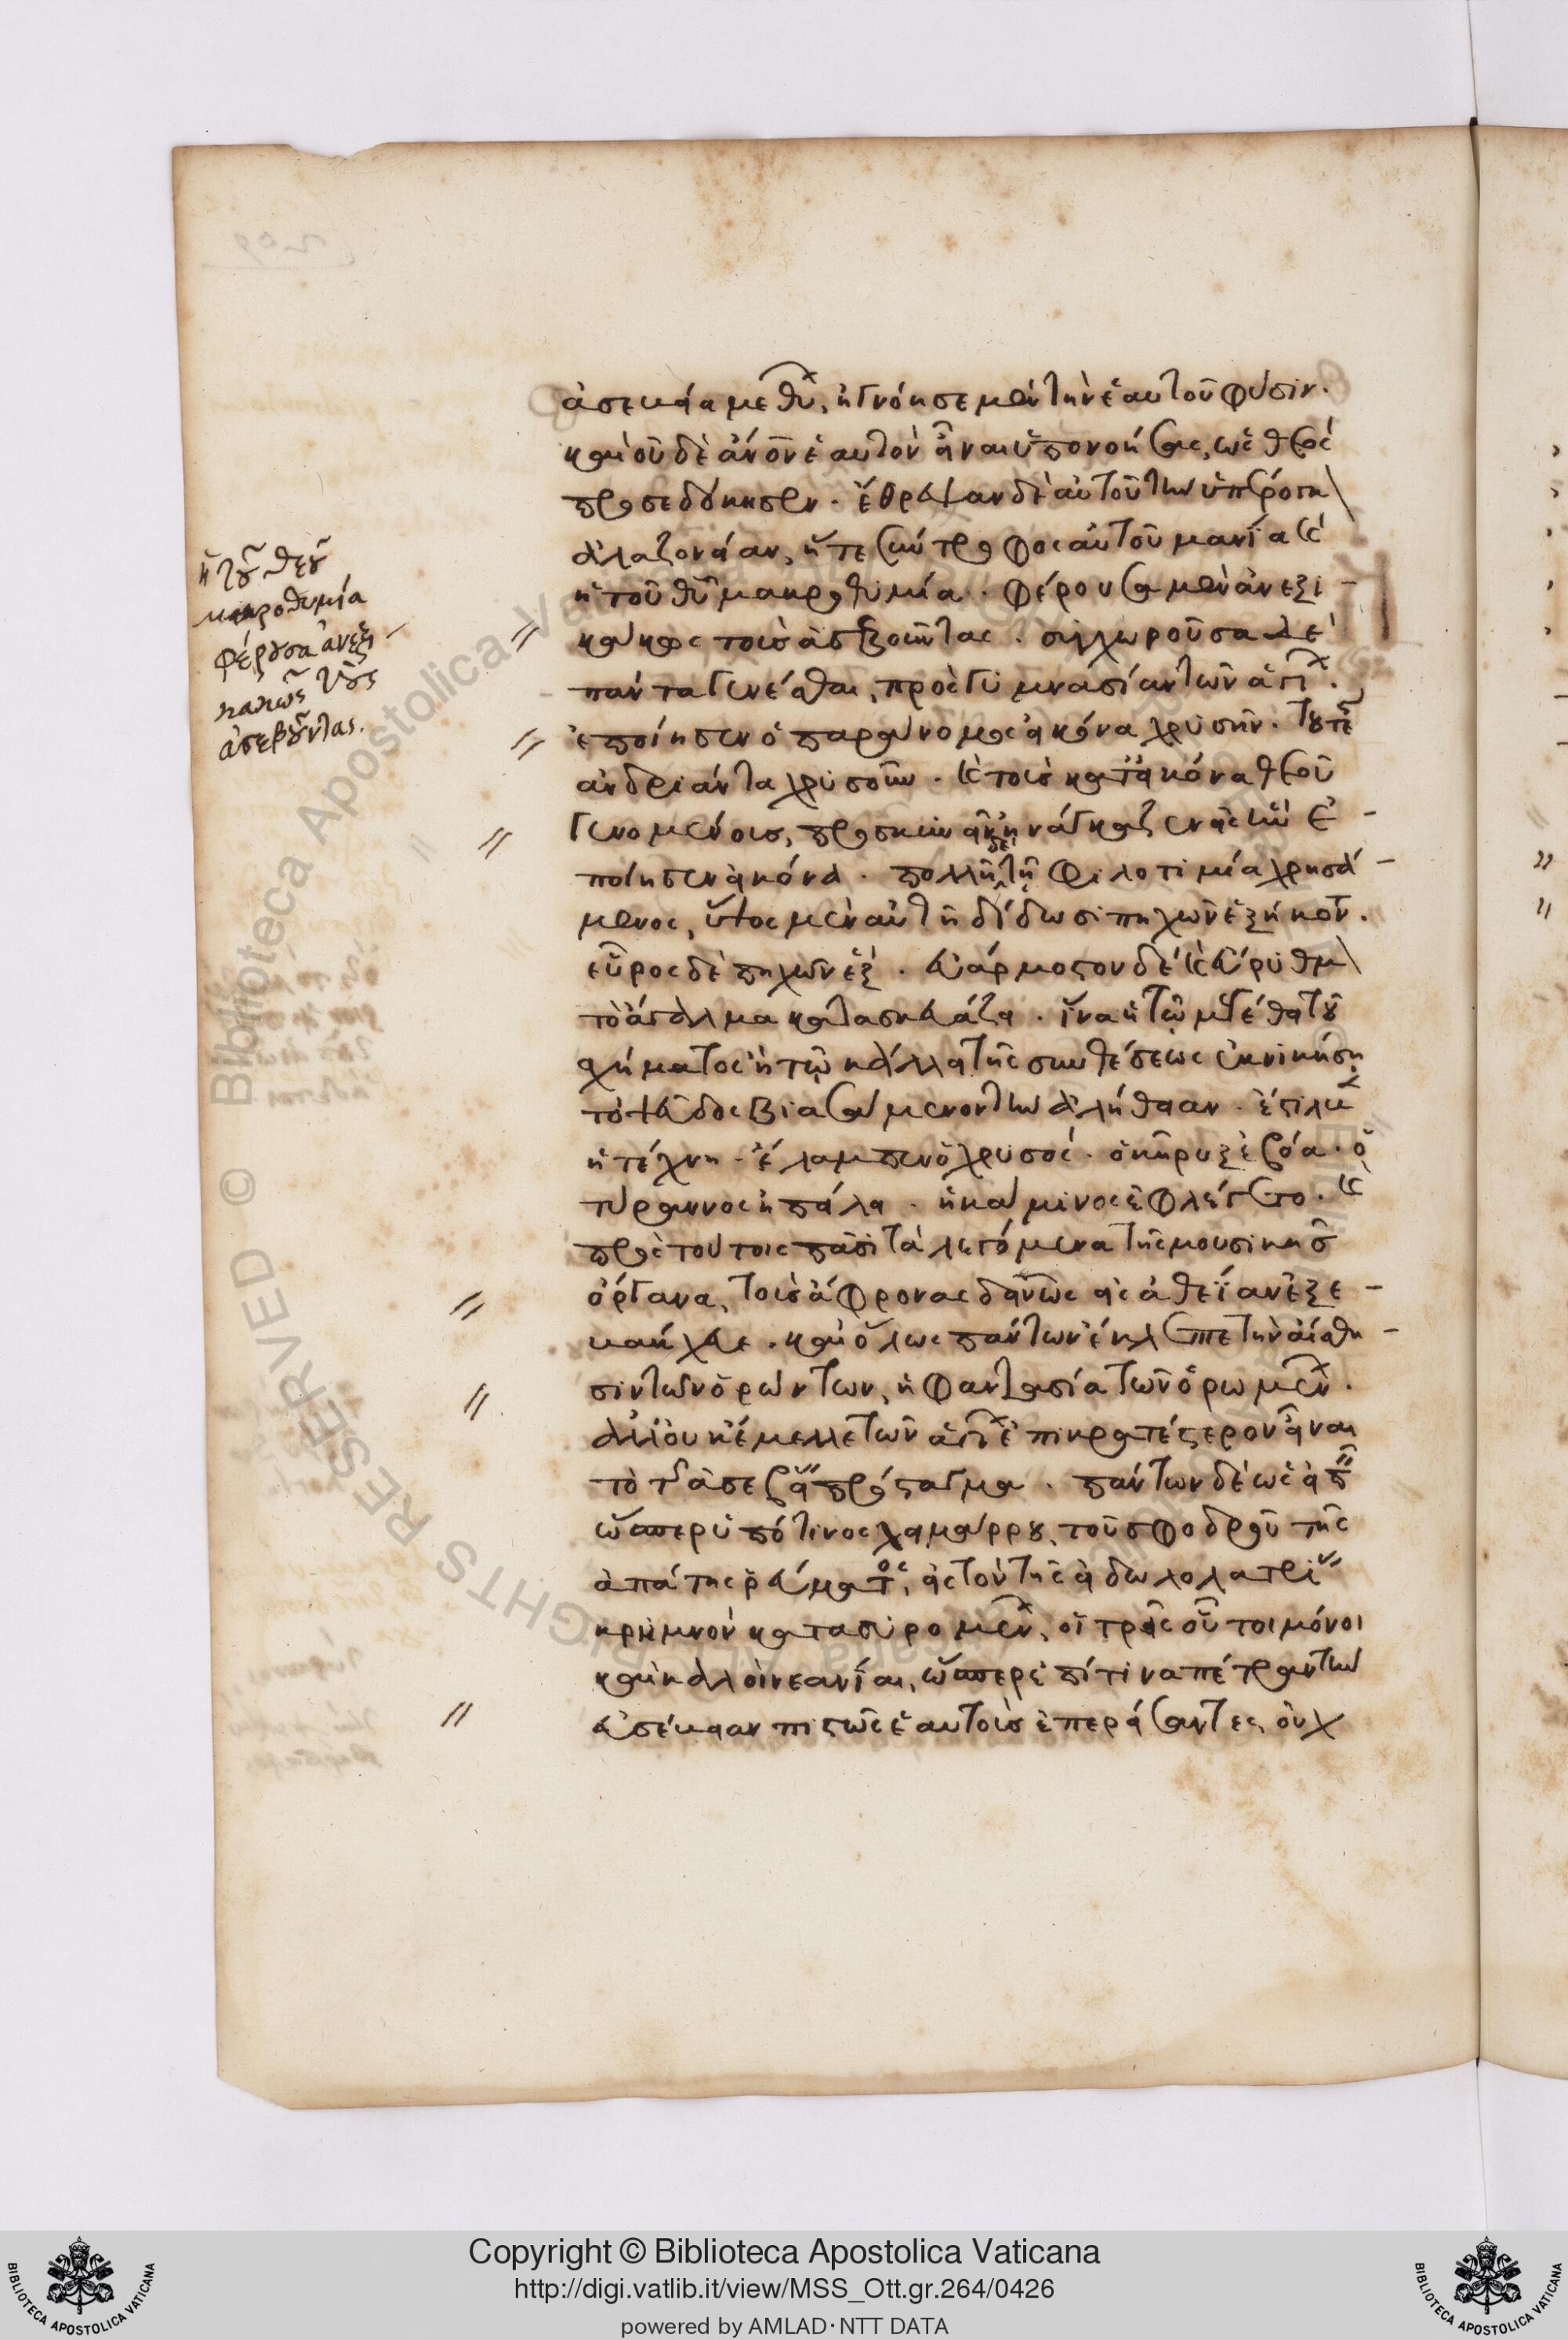 ἀσεβείᾳ μεθυ, ἠγνόησε μὲν τὴν ἑαυτοῦ φύσιν.
καὶ οὐδὲ ἀνον ἑαυτὸν εἶναι ὑπονοήσας, ὡς θεὸς
προσεδόκησεν. ἔθρεψαν δὲ αὐτοῦ τὴν ὑπέρογκ
ἀλαζονείαν, ἥτε σύντροφος αὐτοῦ μανία καὶ
ἡ τοῦ θυ μακροθυμία. φέρουσα μὲν ἀνεξι-
κάκως τοὺς ἀσεβοῦντας. συγχωροῦσα δὲ
πάντα γενέσθαι, πρὸς γυμνασίαν τῶν ἁγι.
ἐποίησεν ὁ παράνομος εἰκόνα χρυσῆν. τουτέ
ἀνδριάντα χρυσοῦν. καὶ τοὺς κατ' εἰκόνα θεοῦ
γενομένους, προσκυνεῖν ἠνάγκαζεν εἰς ἣν ἐ-
ποίησεν εἰκόνα. πολλῇ δὲ τῇ φιλοτιμίᾳ χρησά-
μενος, ὕψος μὲν αὐτῇ δίδωσι πηχῶν ἑξήκοντ.
εὖρος δὲ πηχῶν ἕξ. εὐάρμοστον δὲ καὶ εὔρυθμ
τὸ ἄγαλμα κατασκευάζει. ἵνα ἢ τῷ μεγέθει τοῦ
σχήματος ἢ τῷ κάλλει τῆς συνθέσεως ἐκνικήσῃ
τὸ ψεῦδος βιασάμενον τὴν ἀλήθειαν. ἔστιλβε
ἡ τέχνη. ἔλαμπεν ὁ χρυσός. ὁ κῆρυξ ἐβόα. ὁ
τύραννος ἠπείλει. ἡ κάμινος ἐφλέγετο. καὶ
πρὸς τούτοις πᾶσι τὰ λεγόμενα τῆς μουσικῆς
ὄργανα, τοὺς ἄφρονας δεινῶς εἰς ἀθεΐαν ἐξε-
βάκχευε. καὶ ὅλως πάντων ἐνέκλεπτε τὴν αἴσθη-
σιν τῶν ὁρώντων, ἡ φαντασία τῶν ὁρωμένων.
ἀλλ' οὐκ ἔμελλε τῶν ἁγι ἐπικρατέστερον εἶναι
τὸ τοῦ ἀσεβοῦς πρόσταγμα. πάντων δὲ ὡς εἰπ
ὥσπερ ὑπό τινος χειμάρρου, τοῦ σφοδροῦ τῆς
ἀπάτης ῥεύματος, εἰς τὸν τῆς εἰδωλολατρίας
κρημνὸν κατασυρομένων, οἱ τρεῖς οὗτοι μόνοι
καὶ καλοὶ νεανίαι, ὥσπερ ἐπί τινα πέτραν τὴν
εὐσέβειαν πιστῶς ἑαυτοὺς ἐπερείσαντες, οὐχ
ἡ τοῦ θεοῦ
μακροθυμία
φέρουσα ἀνεξι-
κακῶς τοὺς
ἀσεβοῦντας.
Copyright © Biblioteca Apostolica Vaticana
http://digi.vatlib.it/view/MSS_Ott.gr.264/0426
powered by AMLAD·NTT DATA